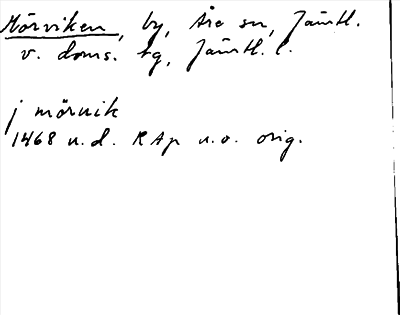 Mörviken, by, Åre sn, Jämtl.
v. doms. tg, Jämtl. l.
j mörvik
1468 u.d. RAp u.o. orig.